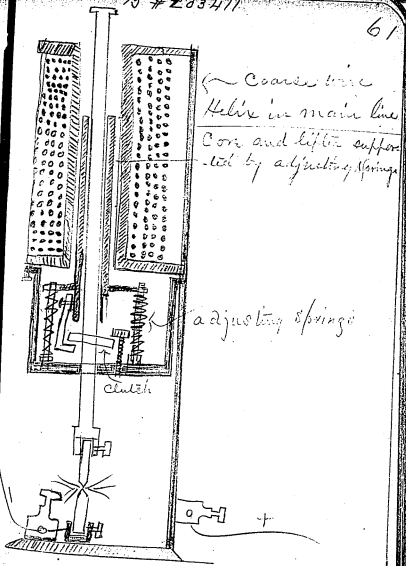 # 203411
61
Coarse wire
Helix in main line
Core and lifter suppor
-ted by adjusting springs
adjusting springs
Clutch
-
+